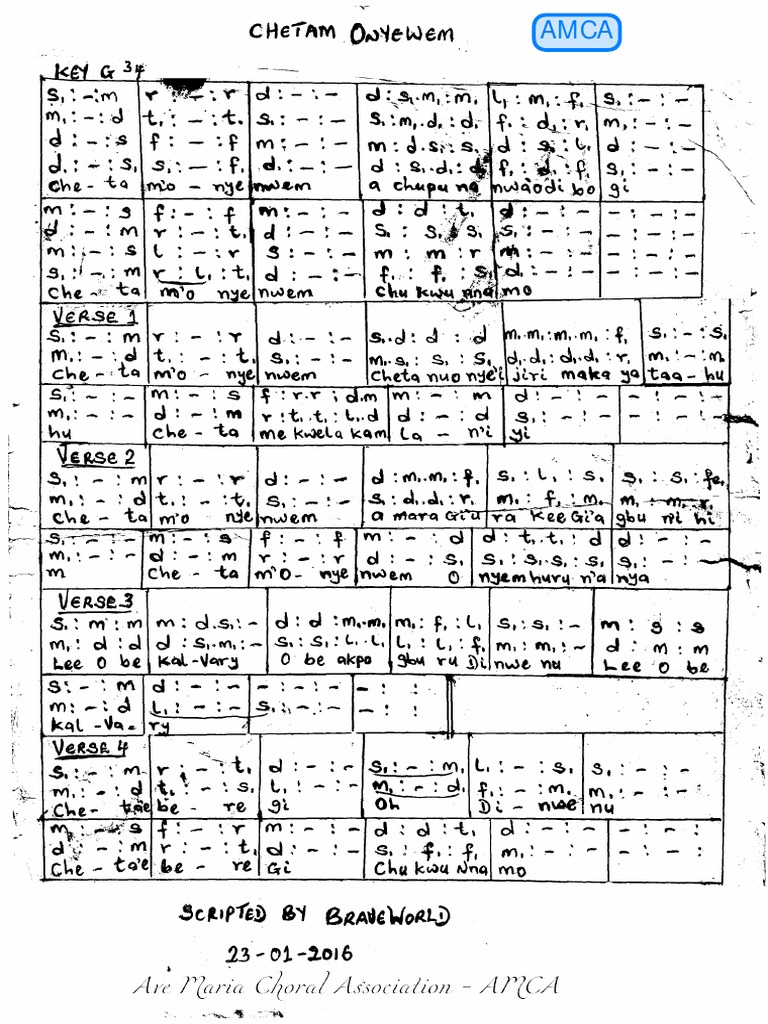 CHETAM ONYEWEM
AMCA
KEY G 3/4
s, : - : m | r : - : r | d : - : - | d : s,.m, : m, | l, : m, : f, | s, : - : -
m, : - : d | t, : - : t, | s, : - : - | s, : m,.d, : d, | f, : d, : r, | m, : - : -
d : - : s | f : - : f | m : - : - | m : d.s, : s, | d : s, : l, | d : - : -
d, : - : s, | s, : - : f, | d, : - : - | d : s,.d, : d | f, : d, : f, | s, : - : -
Che - ta | m'o - nye | nwem | a chupu na | nwàodi bo | gi
m : - : s | f : - : f | m : - : - | d : d : t, | d : - : - | - : - : -
d : - : m | r : - : t, | d : - : - | s, : s, : s, | s, : - : - | - : - : -
m : - : s | l : - : r | s : - : - | m : m : r | m : - : - | - : - : -
s, : - : m | r : l, : t, | d : - : - | f, : f, : s, | d, : - : - | - : - : -
Che - ta | m'o nye | nwem | Chu kwu nna | mo
VERSE 1
s, : - : m | r : - : r | d : - : - | s,.d : d : d | m,.m, : m,.m, : f, | s, : - : s,
m, : - : d | t, : - : t, | s, : - : - | m,.s, : s, : s, | d,.d, : d,.d, : r, | m, : - : m,
Che - ta | m'o - nye | nwem | Cheta nuo nye'i | jiri maka ya | taa - hu
s, : - : - | m : - : s | f : r.r : d.m | m : - : m | d : - : - | - : - : -
m, : - : - | d : - : m | r : t,.t, : l,.d | d : - : d | s, : - : - | - : - : -
hu | Che - ta | me kwela kam | la - n'i | yi
VERSE 2
s, : - : m | r : - : r | d : - : - | d : m,.m, : f, | s, : l, : s, | s, : s, : fe,
m, : - : d | t, : - : t, | s, : - : - | s, : d,.d, : r, | m, : f, : m, | m, : m, : r,
Che - ta | m'o nye | nwem | a mara Gi'u | ra Kee Gi'a | gbu rṅ hi
s, : - : - | m : - : s | f : - : f | m : - : d | d : t,.t, : d | d : - : -
m, : - : - | d : - : m | r : - : r | d : - : s, | s, : s,.s, : s, | s, : - : -
m | Che - ta | m'O - nye | nwem O | nyem huru n'a | nya
VERSE 3
s, : m : m | m : d.s, : - | d : d : m,.m, | m, : f, : l, | s, : s, : - | m : s : s
m, : d : d | d : s,.m, : - | s, : s, : l,.l, | l, : l, : f, | m, : m, : - | d : m : m
Lee O be | Kal-Vary | O be akpo | gbu ru Di | nwe nu | Lee O be
s : - : m | d : - : - | - : - : - | - : :
m : - : d | l, : - : - | s, : - : - | - : :
Kal - Va - | ry
VERSE 4
s, : - : m | r : - : t, | d : - : - | s, : - : m, | l, : - : s, | s, : - : -
m, : - : d | t, : - : s, | l, : - : - | m, : - : d, | f, : - : m, | m, : - : -
Che - tae | be - re | gi | Oh | Di - nwe | nu
m : - : s | f : - : r | m : - : - | d : d : t, | d : - : - | - : - : -
d : - : m | r : - : t, | d : - : - | s, : f, : f, | m, : - : - | - : - : -
Che - ta'e | be - re | Gi | Chu kwu Nna | mo
SCRIPTED BY BRAVEWORLD
23-01-2016
Ave Maria Choral Association - AMCA